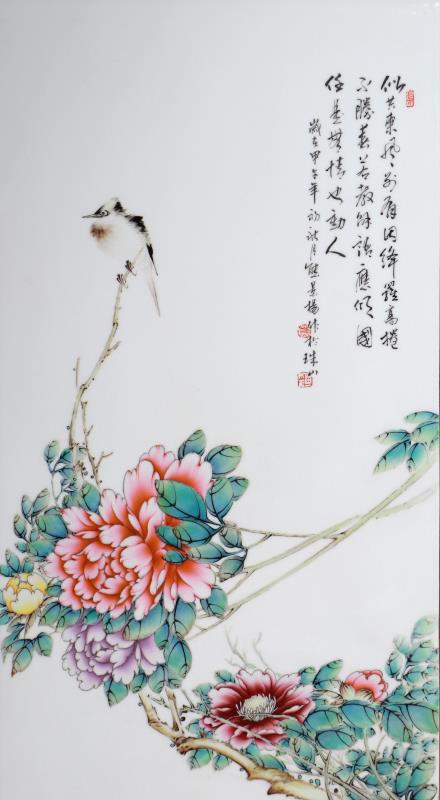 似共東風別有因絳羅高捲
不勝春若教解語應傾國
任是無情也動人
歲在甲午年初秋月熊景揚作於珠山